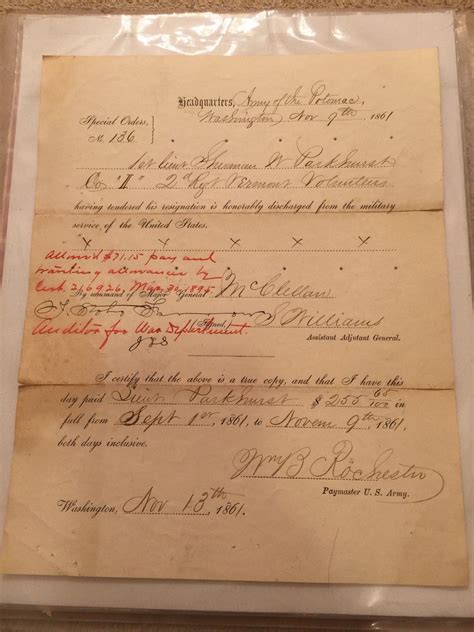 Headquarters, Army of the Potomac,
Washington, Nov 9th 1861
Special Orders,
No. 136
1st Lieut Sherman W Parkhurst
Co "I" 2d Regt Vermont Volunteers
having tendered his resignation is honorably discharged from the military
service of the United States.
X X X X X
Allowed $71.15 pay and
allowance by
Cert. 216926, Mar. 30, 1895
By command of Major General McClellan
Auditor for War Department.
Signed, S Williams
Assistant Adjutant General.
I certify that the above is a true copy, and that I have this
day paid Lieut Parkhurst $ 255 65/100 in
full from Sept 1st, 1861, to Novem 9th, 1861,
both days inclusive.
Wm B Rochester
Paymaster U. S. Army.
Washington, Nov 13th 1861.